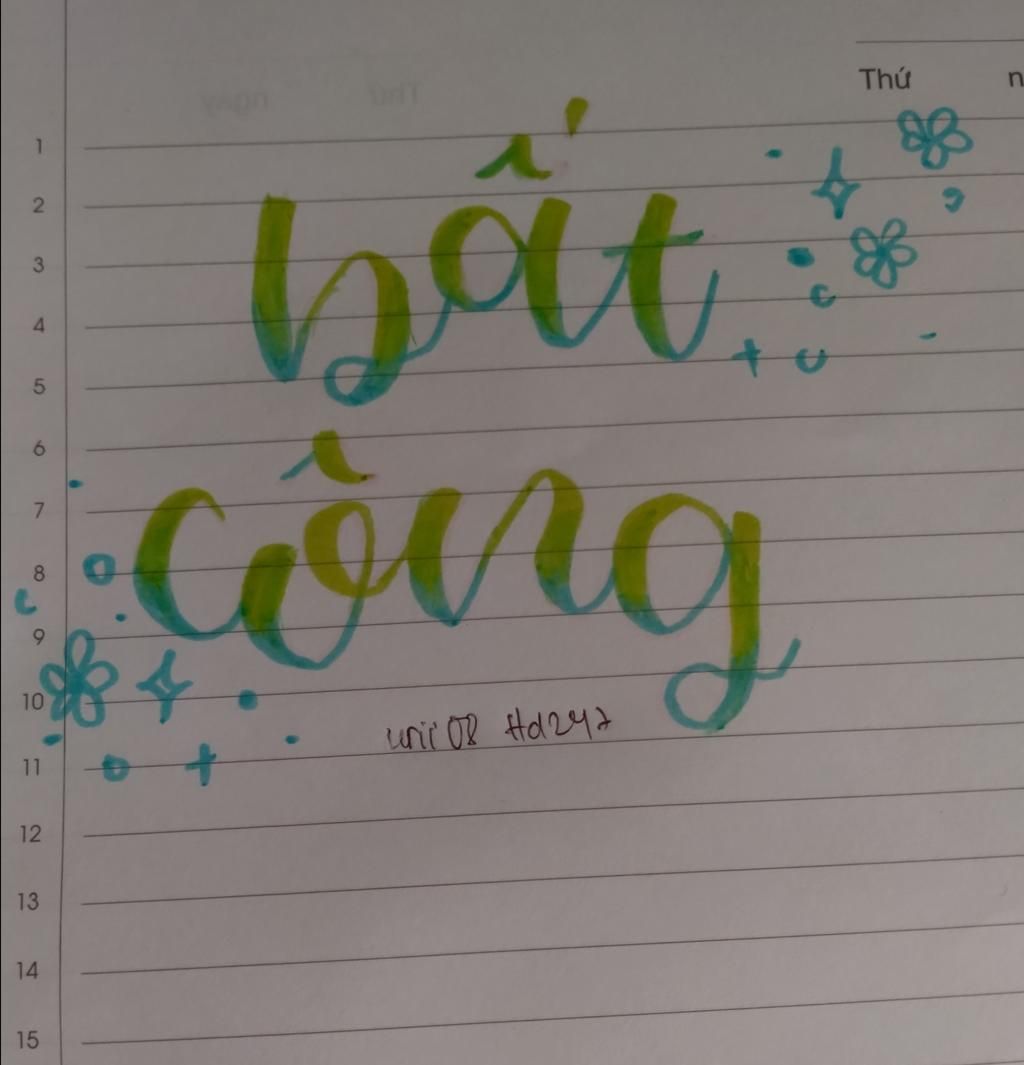 Thứ n
bất
công
urii 08 Hd247
1
2
3
4
5
6
7
8
9
10
11
12
13
14
15